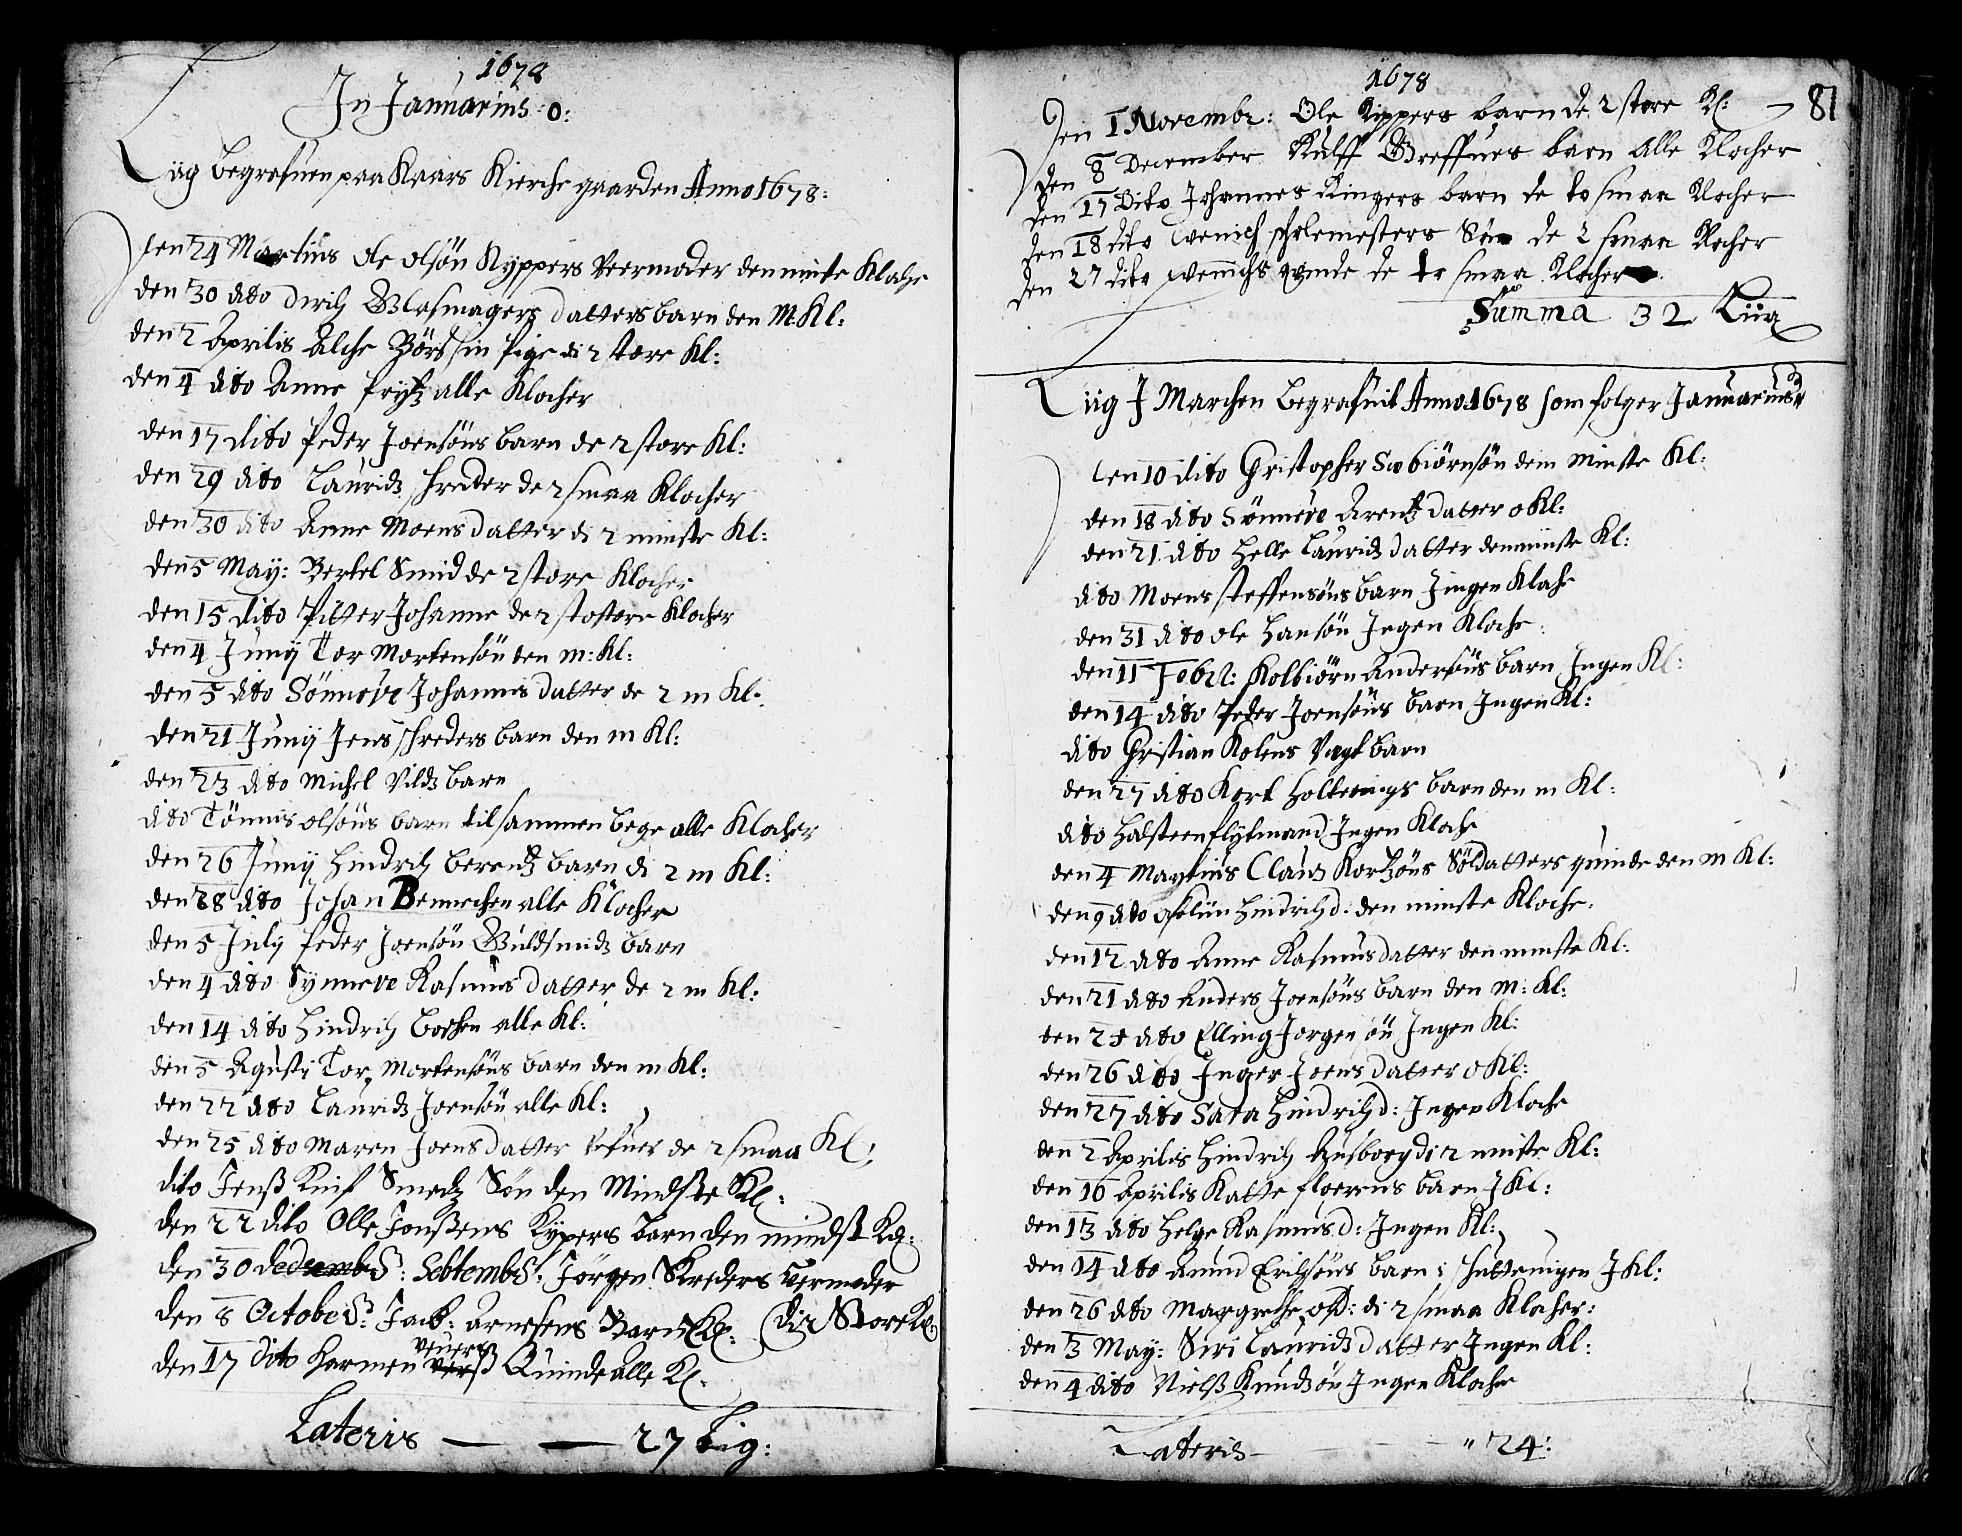 1678
In Januarius: 0:
Liig begrafuen paa Kaars Kierche gaarden Anno 1678:
den 24 Martius Ole Olsön Kyppers Veermoder den minste Kloche
den 30 dito Dirich Glasmagers datters barn den M. Kl:
den 2 Aprilis Alche Börs sin Pige di 2 store Kl:
den 4 dito Anne Prytz alle Klocher
den 17 dito Peder Joensöns barn de 2 store Kl:
den 29 dito Lauridz schreder de 2 smaa Klocher
den 30 dito Anne Moens datter di 2 minste Kl:
den 5 May: Bertel Smid de 2 store Klocher
den 15 dito Pitter Johanne de 2 store Klocher
den 4 Junij Tor Mortensön den m: Kl:
den 5 dito Sönneve Johannis datter de 2 m Kl:
den 21 Junij Jens schreders barn den m Kl:
den 23 dito Michel Vildz barn
dito Tönnis olsöns barn tilsammen bege alle Klocher
den 26 Junij Hindrich berentz barn di 2 m Kl:
den 28 dito Johan Bennechen alle Klocher
den 5 July Peder Joensön Guldsmidz barn
den 4 dito Synneve Rasmus datter de 2 m Kl:
den 14 dito Hindrich Bochen alle Kl:
den 5 Agusti Tor Mortensöns barn den m Kl:
den 22 dito Lauridz Joensön alle Kl:
den 25 dito Maren Joens datter de 2 smaa Kl:
dito Jenß Knif Smedz Sön den Mindste Kl:
den 22 dito Olle Jonßens Kypers barn den mindst Kl:
den 30 Septembr: Jörgen Skreders Vermoder
den 8 October: Jacb: arnesens Barn Kl: (di 2 Store Kl)
den 17 dito Harmen Veuerß Quinde alle Kl.
Lateris — — 27 Lig:
1678
81
den 1 Novembr: Ole Kippers barn de 2 store Kl:
den 8 December Rulff Greffues barn alle Klocher
den 17 Dito Johannes Ringers barn de to smaa Klocher
den 18 dito Wenich scholemesters Sön de 2 smaa Klocher
den 27 dito Wenichs qvinde de to smaa Klocher
Summa 32 Liig
Liig I Marchen begrafuit Anno 1678 som folger Januarius
den 10 dito Christopher Swbiörnsön dem minste Kl:
den 18 dito Sönneve Arentz datter 0 Kl:
den 21 dito Helle Lauridz datter den minste Kl:
dito Moens steffensöns barn Jingen Kloche
den 31 dito ole Hansön Jngen Kloche
den 11 Febr: Kolbiörn Andersöns barn Jngen Kl:
den 14 dito Peder Joensöns barn Jngen Kl:
dito Christian Kolens Vegt barn
den 27 dito Kort Holtenigs barn den m Kl:
dito Halsteen flytmand Jngen Kloche
den 4 Martius Clauz Kortzöns Söldatters quinde den m Kl:
den 9 dito Hindrichd: den minste Kloche.
den 12 dito Anne Rasmusdatter den minste Kl:
den 21 dito Anders Joensöns barn den m: Kl:
den 25 dito Elling Jorgensön Jngen Kl:
den 26 dito Jnger Joens datter 0 Kl:
den 27 dito Sara Hindrichd: Jngen Kloche
den 2 Aprilis Hindrich Husborg di 2 minste Kl:
den 16 Aprilis Katte floerens barn J Kl:
den 13 dito Helge Rasmusd: Jngen Kl:
den 14 dito Amund Erichsöns barn i schuttenigen J Kl:
den 26 dito Margrethe olsd: di 2 smaa Klocher:
den 3 May: Siri Lauridz datter Jngen Kl:
den 4 dito Nielß Knudzön Jngen Kloche
Lateris — " 24: